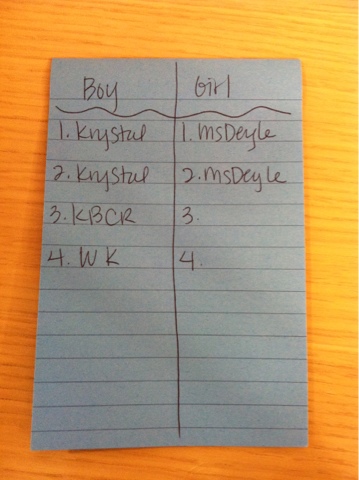 Boy Girl
1. Krystal 1. MsDeyle
2. Krystal 2. MsDeyle
3. KBCR 3.
4. WK 4.